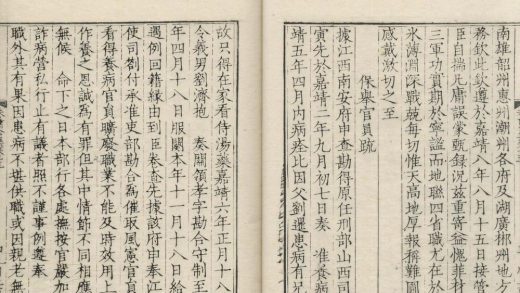 南雄韶州惠州潮州各府及湖廣郴州地方
務欽此欽遵於嘉靖八年八月十五日接管
臣自揣凡庸誤蒙甄錄況茲重寄益愧菲材
三軍功賞期於寧謐而地聯四省職尤在於
氷薄淵深戰兢每切惟天高地厚報稱難圖
感戴激切之至
保舉官員疏
據江西南安府申查勘得原任刑部山西司
寅先於嘉靖二年九月初七日奏 准養病
靖五年四月內病痊比因父劉遷患病有兄
故只得在家看侍湯藥嘉靖六年正月十八
令義男劉濟抱 奏關領孝字勘合守制至
年四月十八日服闋本年十一月十八日給
遇例回籍緣由到臣卷查先據該府申奉江
使司劄付承准吏部勘合為催取風憲官員
看得養病官員曠廢職業不能及時效用上
作養之恩誠為有罪但其中情節不同相應
無候 命下之日本部行各處撫按官嚴加
詐病營私行止有議者照不謹事例遵奏
職外其有果因患病不堪供職或因親老無